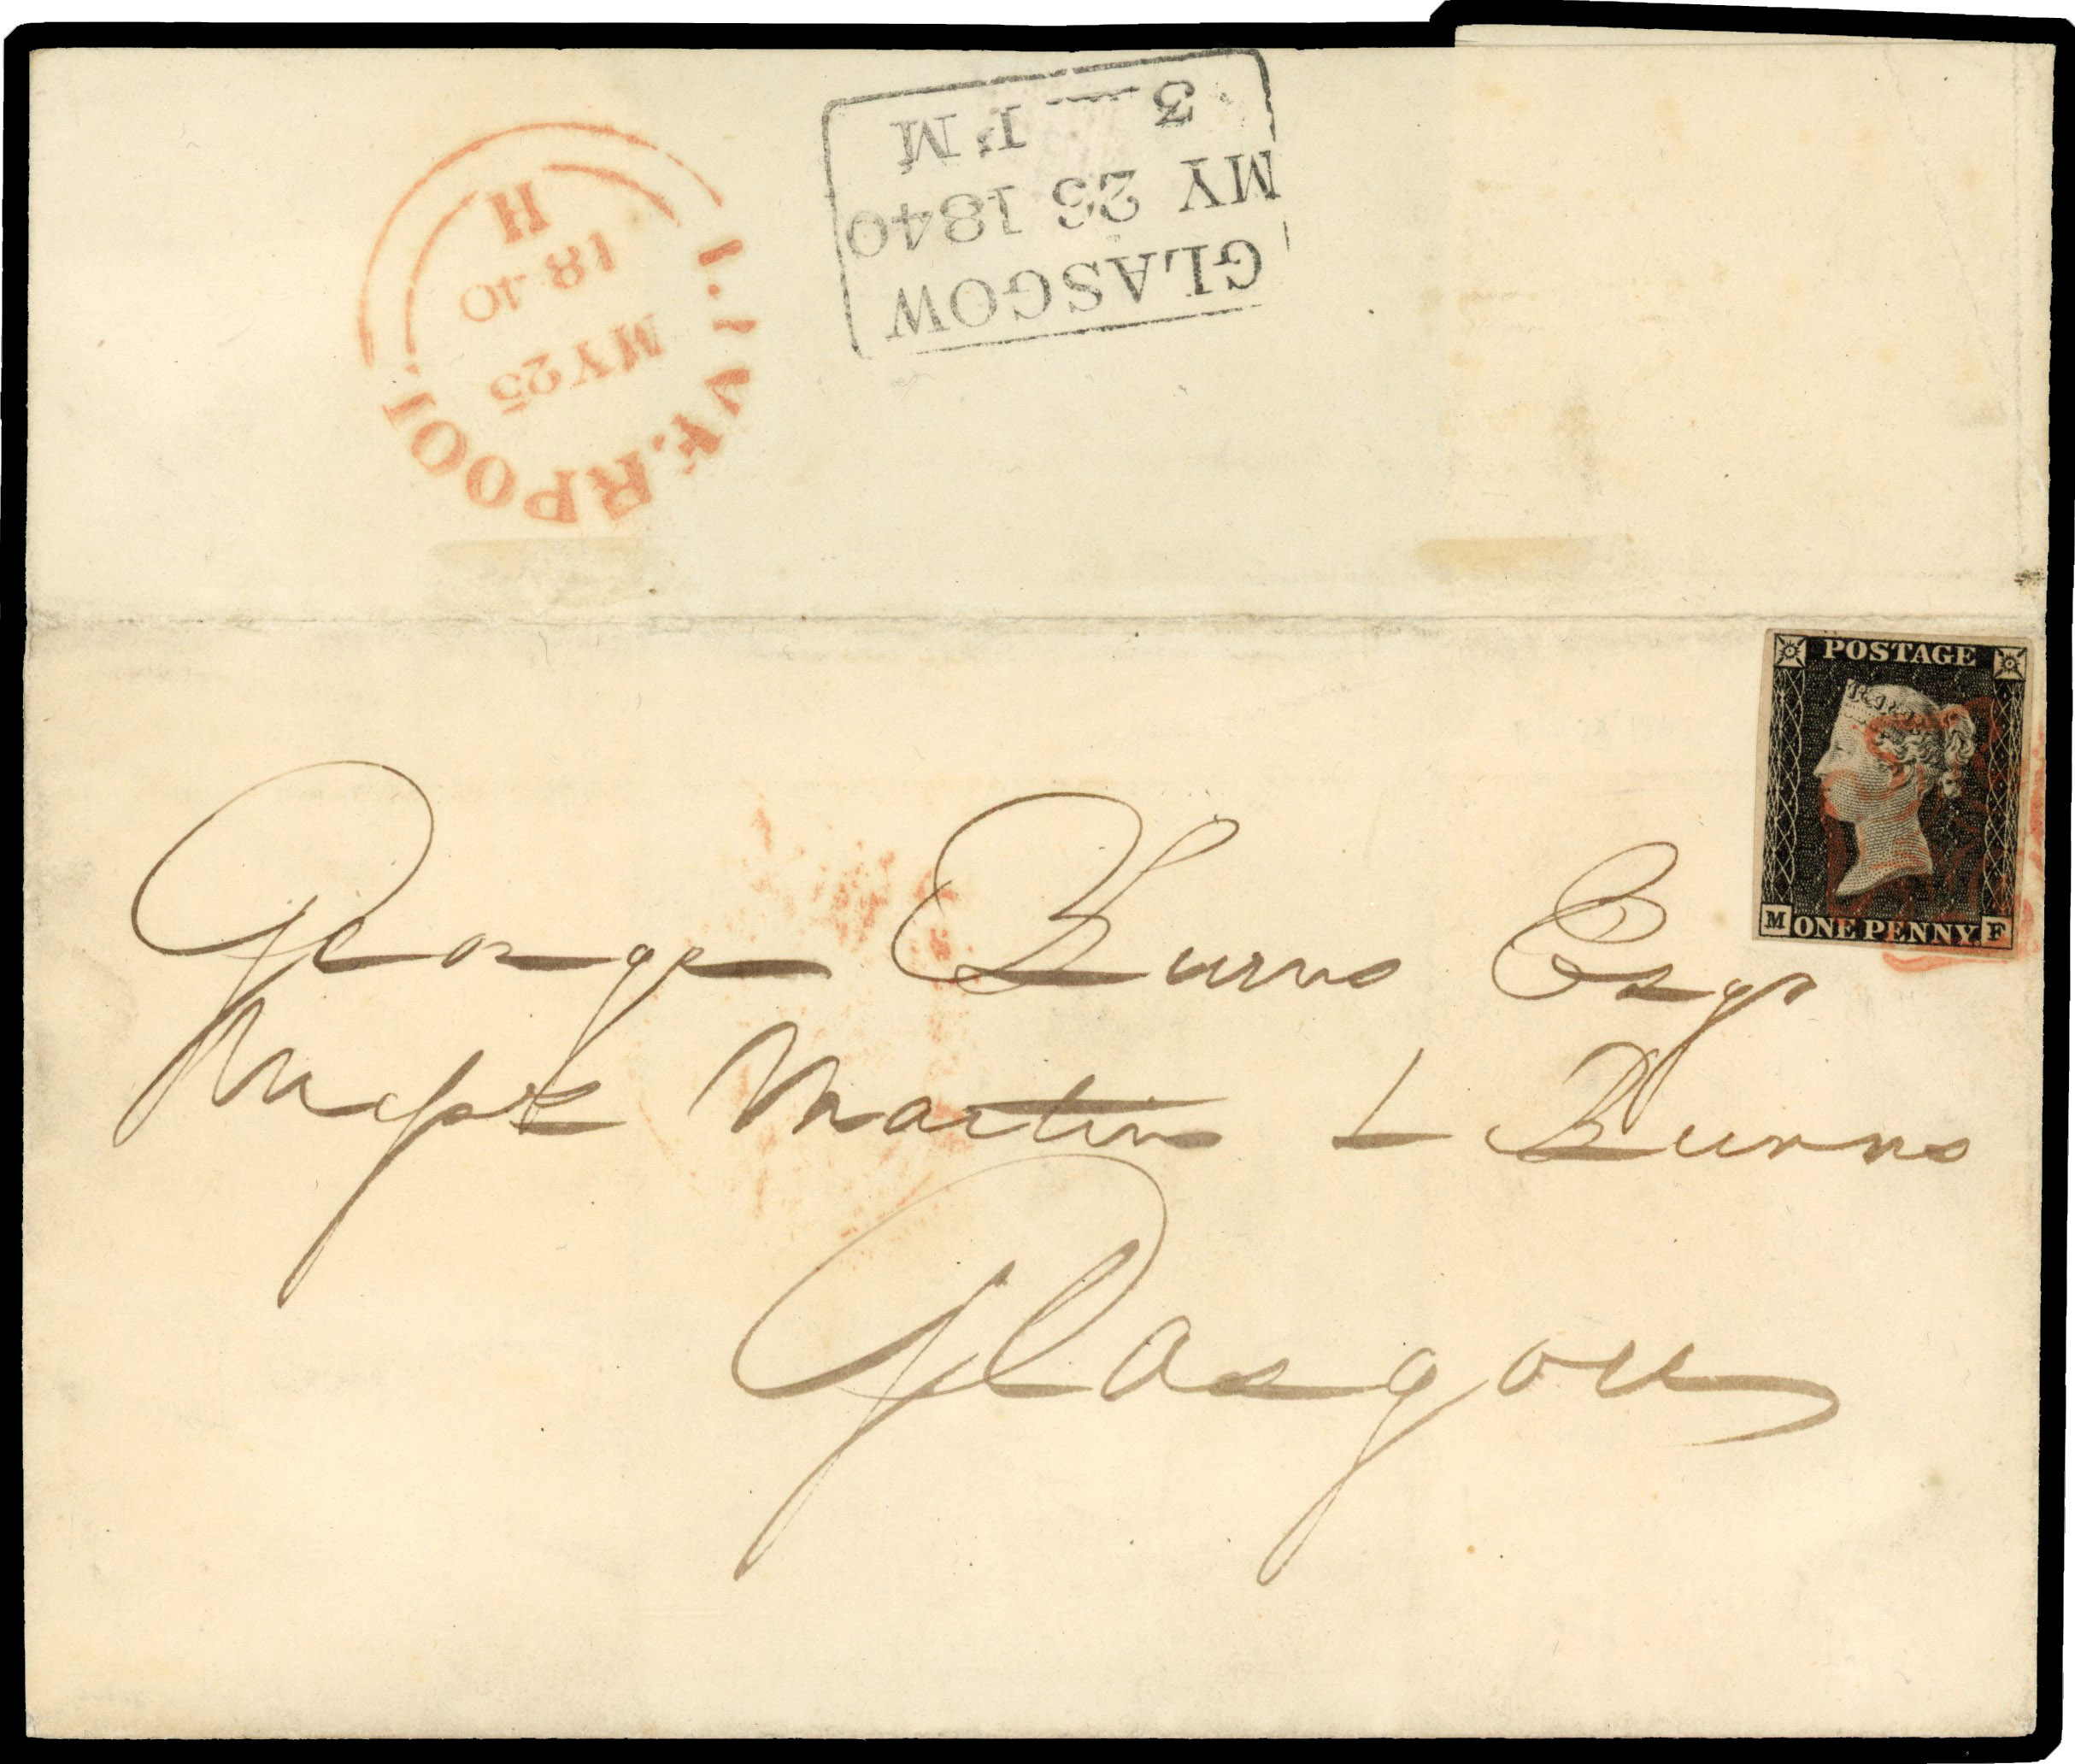 LIVERPOOL
MY 25
1840
H
GLASGOW
MY 26 1840
3 PM
POSTAGE
M ONE PENNY. F
George Burns Esqr
Messrs Martin & Burns
Glasgow